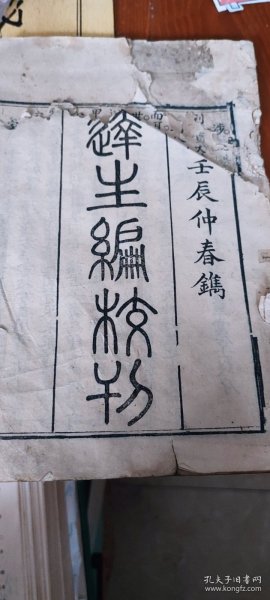 壬辰仲春鐫
達生編校刊
孔夫子旧书网
www.kongfz.com